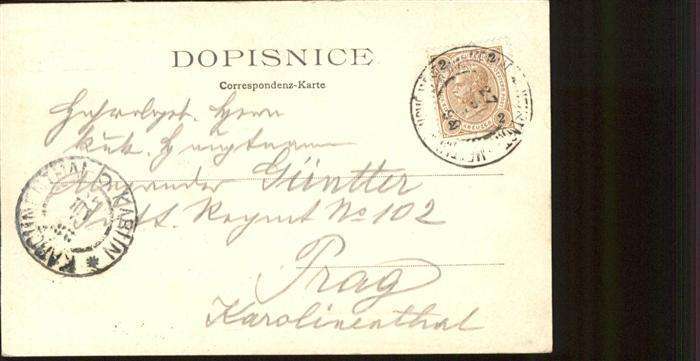 DOPISNICE
Correspondenz-Karte
2 2
2 2
Hochwolgeb. Herrn
k.u.k. Hauptmann
Alexander Güntter
Inftt. Regmt No 102
Prag
Karolinenthal
KAROLINENTHAL KARLIN